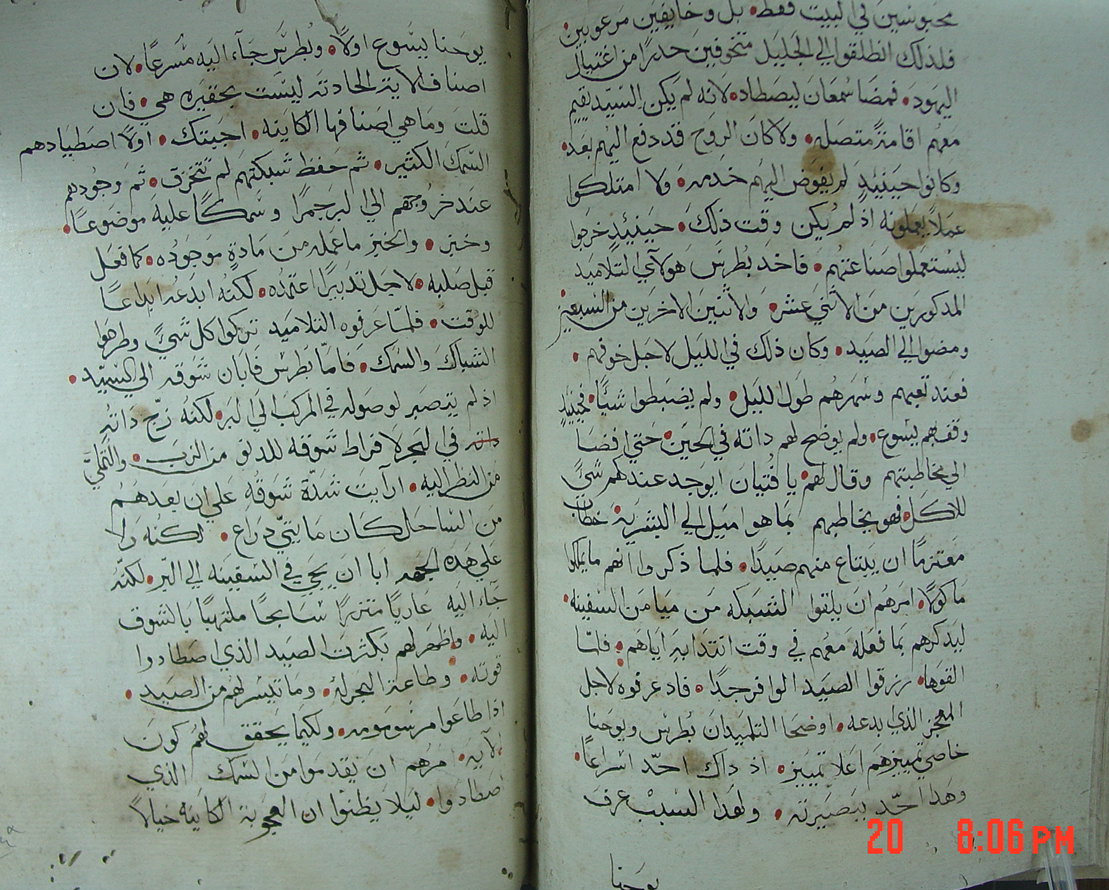 محبوسين في البيت فقط • بل وخايفين مرعوبين
فلذلك انطلقوا الي الجليل متخوفين حدرا من اغتيال
اليهود • فمضا سمعان ليصطاد • لانه لم يكن السيد يقيم
معهم اقامةً متصله • ولا كان الروح قد دفع اليهم بعد •
وكانوا حينيدٍ لم يفوض اليهم خدمه • ولا امتلكوا
عملاً يعملونه اذ لم يكن وقت ذلك • حينيدٍ خرجوا
ليستعملوا صناعتهم • فاخد بطرس هولاي التلاميد
المدكورين من الاثني عشر • والاثنين الاخرين من السبعين
ومضوا الي الصيد • وكان ذلك في الليل لاجل خوفهم •
فعند تعبهم وسهرهم طول الليل • ولم يضبطوا شياً • فحينيدٍ
وقف بهم يسوع • ولم يوضح لهم داته في الحين • حتي افضا
الي مخاطبتهم وقال لهم • يا فتيان ايوجد عندكم شيً
للاكل • فهو يخاطبهم بما هو اميل الي البشرية • خطاب
معتزمًا ان يبتاع منهم صيدًا • فلما ذكروا انهم ما يملكوا
ماكولاً • امرهم ان يلقوا الشبكه من ميامن السفينه •
ليدكرهم بما فعله معهم في وقت ابتدايه اياهم • فلما
القوها • رزقوا الصيد الوافر جدًا • فاد عرفوه لاجل
المعجز الذي ابدعه • اوضحا التلميدان بطرس ويوحنا
خاصي تمييزهم اعلا تمييز • اذ داك احدّ اسراعًا •
وهدا احدّ ببصيرته • ولهدا السبب عرف
يوحنا
يوحنا يسوع اولاً • وبطرس جآء اليه مسرعاً • لان
اصناف الايه الحادته ليست بحقيره هي • فان
قلت وما هي اصنافها الكاينه • اجبتك • اولاً اصطيادهم
السمك الكثير • ثم حفظ شبكتهم لم تتخرق • ثم وجودهم
عند خروجهم الي البر جمرا وسمكًا عليه موضوعًا •
وخبز • والخبز ما عمله من مادةٍ موجوده • كما فعل
قبل صلبه • لاجل تدبيرًا اعتمده • لكنه ابدعه ابداعًا
للوقت • فلما عرفوه التلاميد تركوا كل شيً وطرحوا
الشباك والسمك • فاما بطرس فابان شوقه الي السيد •
اذ لم يتصبر لوصوله في المركب الي البر • لكنه زج داته
داته في البحر لافراط شوقه للدنو من الرب • والتملي
من النظر اليه • ارايت شدّة شوقه علي ان بعدهم
من الساحل كان مايتي دراع • لكنه ولا
علي هده الجهه ابا ان يجي في السفينه الي البر • لكنه
جآء اليه عاريًا متزرًا سابحًا ملتهبًا بالشوق
اليه • واظهر لهم بكثرت الصيد الذي اصطادوا
قوته • وطاعة البحر له • وما تيسر لهم من الصيد •
اذا طاعوا مرسومه • ولكيما يحقق لهم كون
الايه • امرهم ان يقدموا من السمك الذي
صطادوا • ليلا يظنوا ان العجوبة الكاينه خيالاً
20 8:06 PM